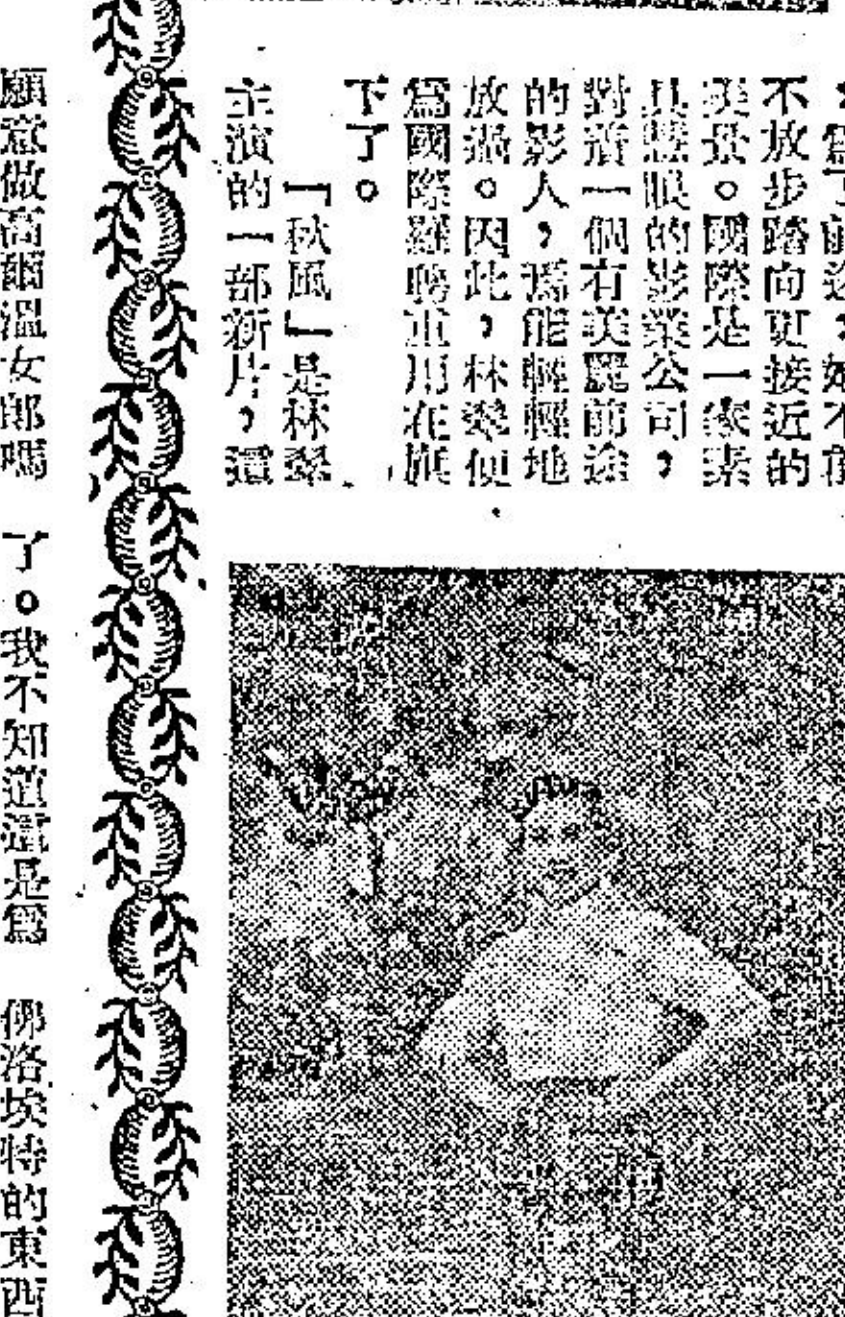 ，爲了前途，她不
不放步踏向更接近的
美景。國際是一家素
具慧眼的影業公司，
對着一個有美麗前途
的影人，焉能輕輕地
放過。因此，林翠便
爲國際羅聘重用在旗
下了。
「秋風」是林翠
主演的一部新片，還
願意做高爾溫女郎嗎
了。我不知道這是爲
佛洛埃特的東西